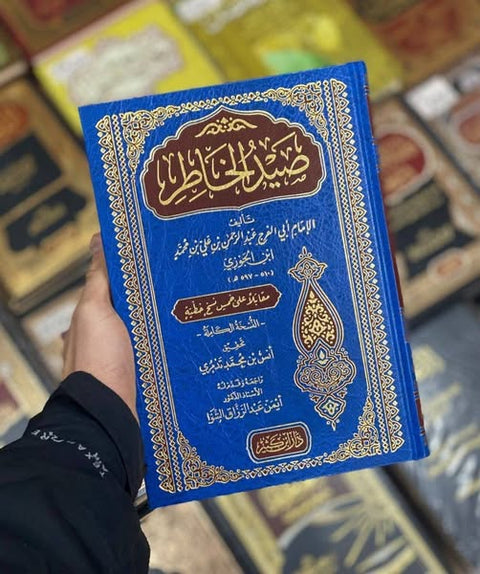 صَيْدُ الخَاطِرِ
تأليف
الإمام أبي الفرج عبد الرحمن بن علي بن محمد
ابن الجوزي
(٥١٠ - ٥٩٧ هـ)
مقابلاً على خمس نسخ خطية
- النسخة الكاملة -
تحقيق
أنس بن محمد تدمري
راجعه وقدم له
الأستاذ الدكتور
أيمن عبد الرزاق الشوا
دار ابن كثير